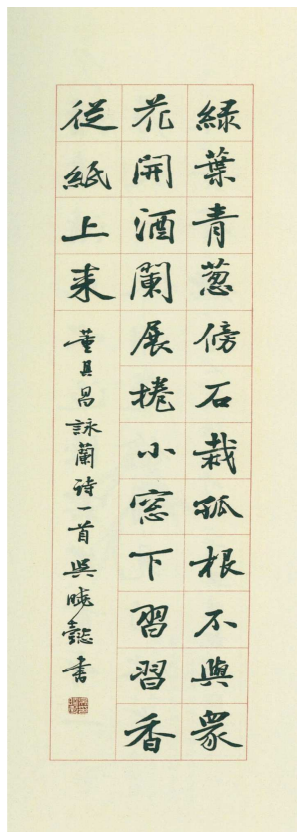 綠葉青葱傍石栽孤根不與衆
花開酒闌展捲小窓下習習香
從紙上來
董其昌詠蘭詩一首吳曉懿書